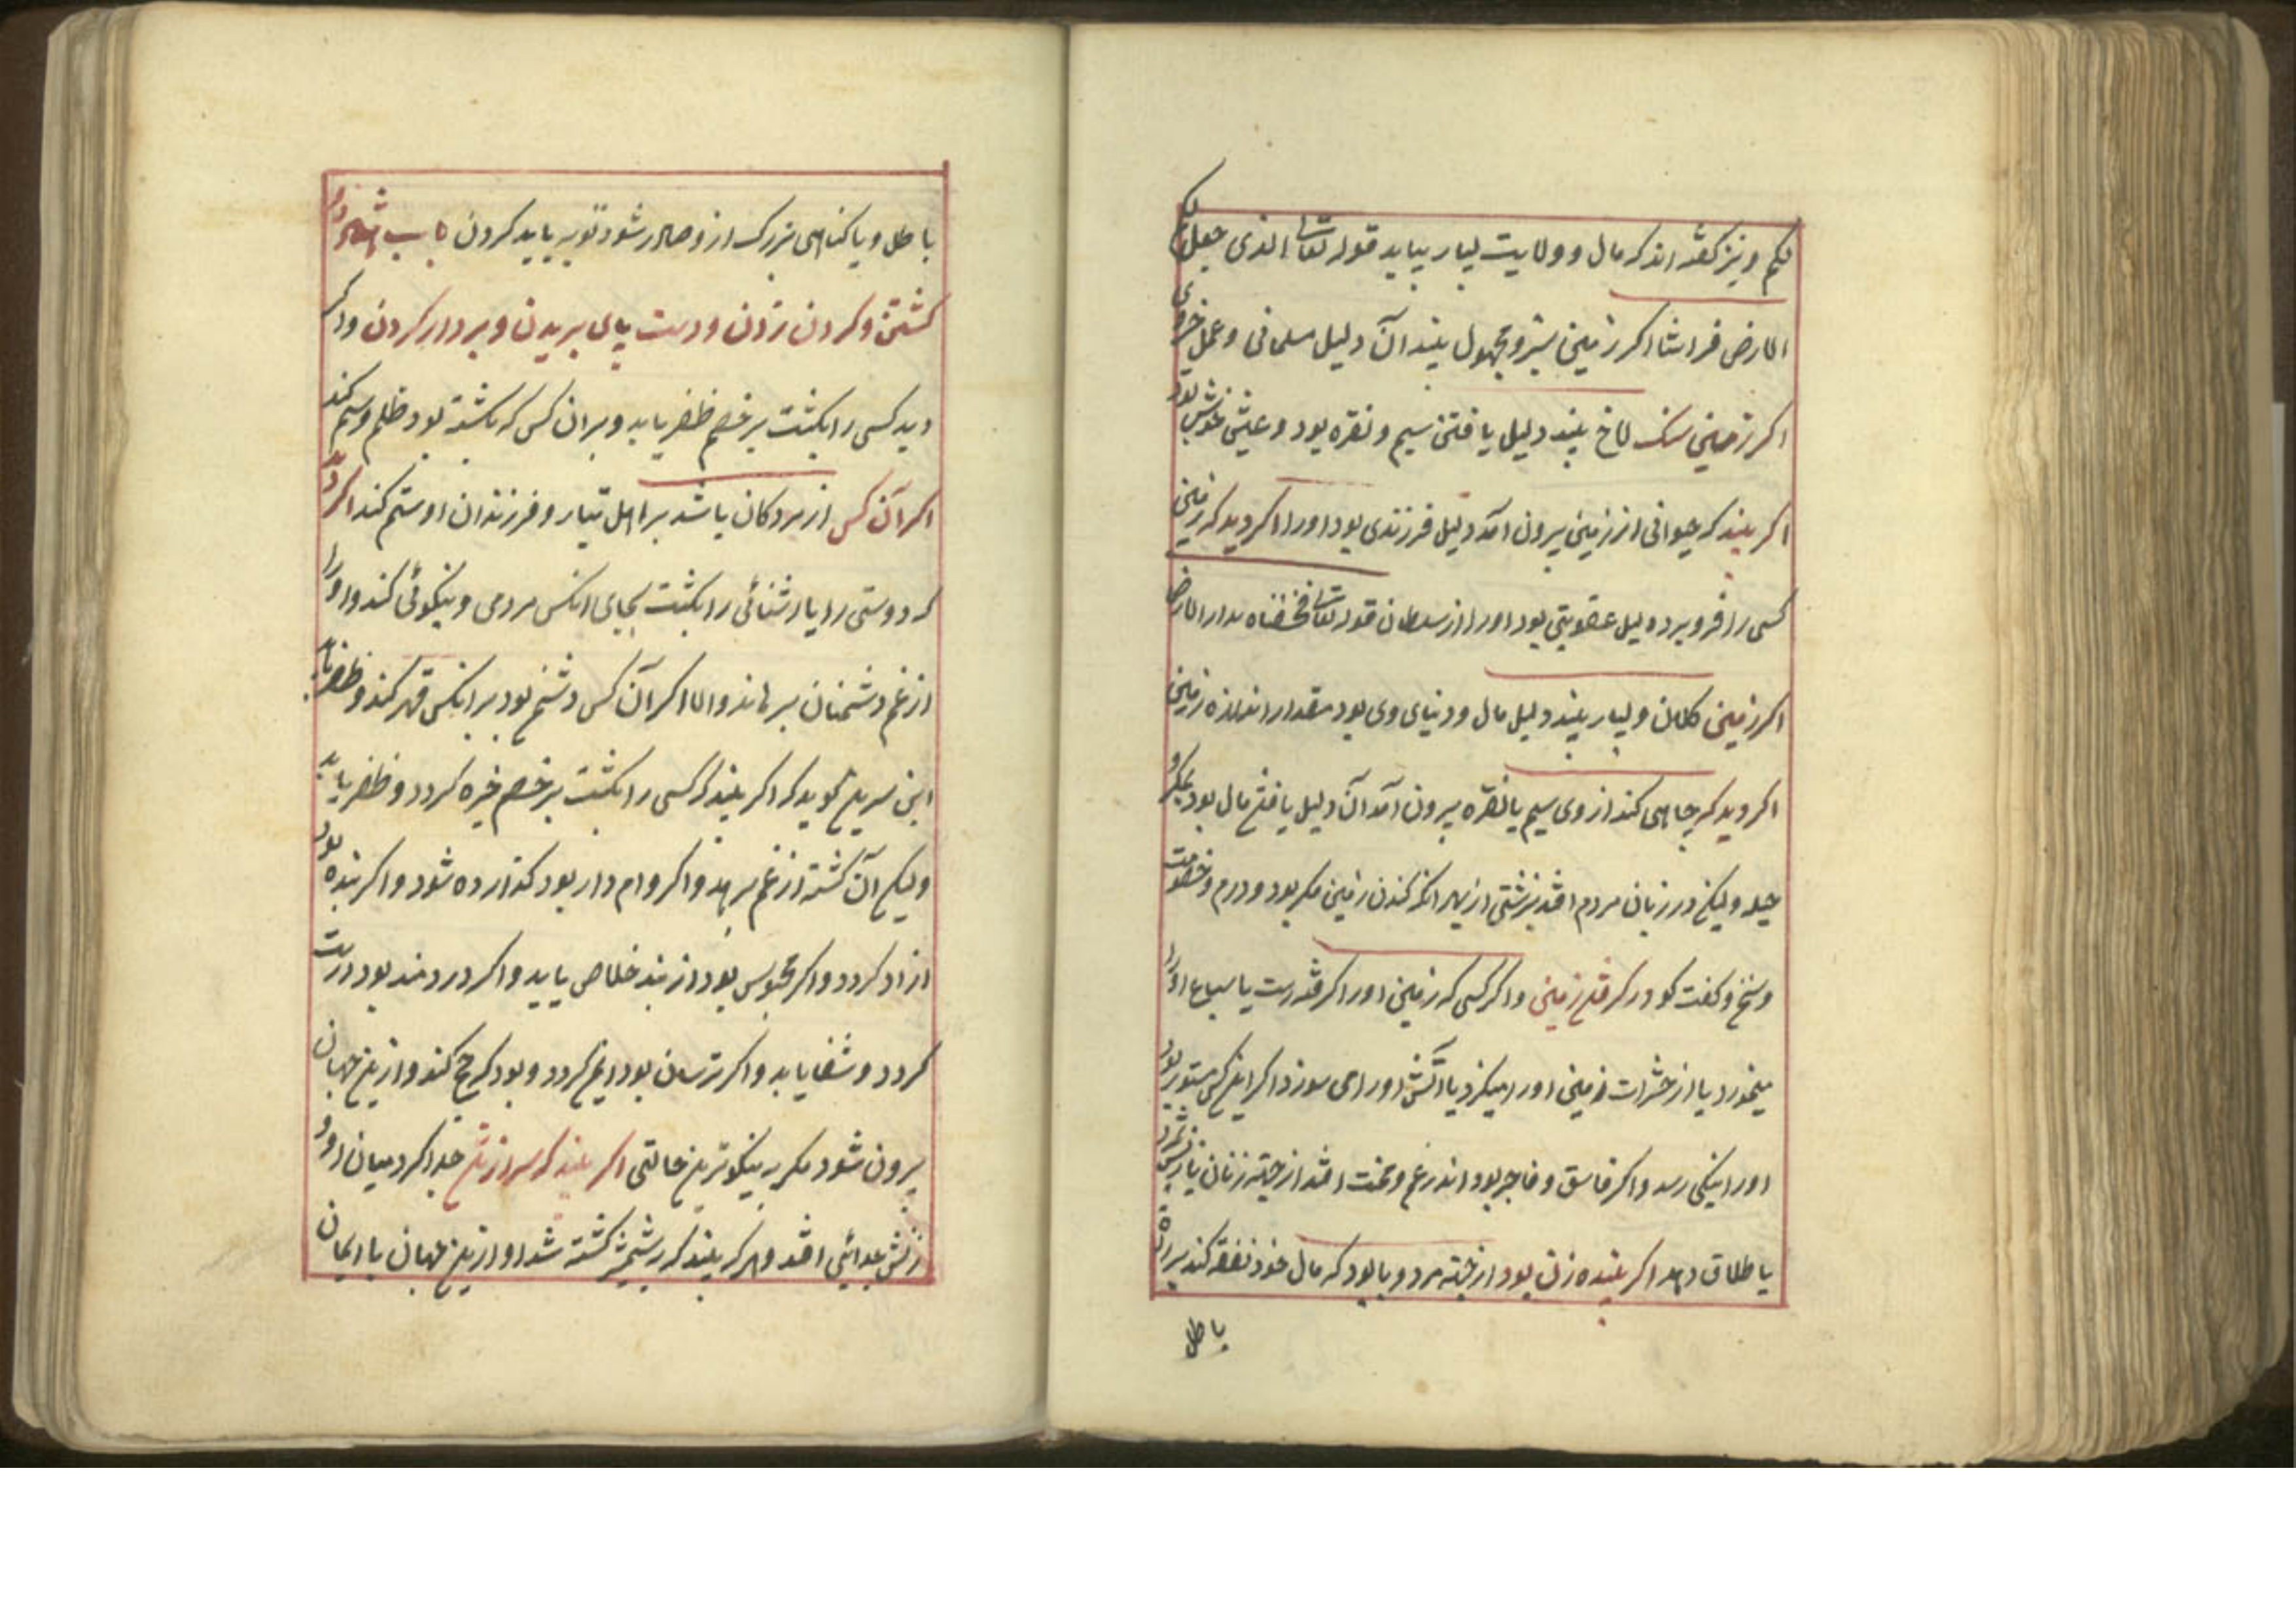 لکم و نیز کفته اند که مال و ولایت بسیار بیابد قوله تعالی الذی جعل لکم
الارض فراشا اکر زمین سبز و مجهول بیند آن دلیل مسلمانی و عمل خیر
اکر زمین سنک لاخ بیند دلیل یافتن سیم و نقره بود و عیش خوش بود
اکر بیند که حیوانی از زمین بیرون آمد دلیل فرزندی بود او را اکر دید که زمین
کسی را فرو برد دلیل عقوبتی بود او را از سلطان قوله تعالی فخسفناه بداره الارض
اکر زمین کلان و بسیار بیند دلیل مال و دنیای وی بود مقدار اندازه زمین
اکر دید که چاهی کند از وی سیم یا نقره بیرون آمد آن دلیل یافتن مال بود بمکر و
حیله ولیکن در زبان مردم افتد بزشتی از بهر آنکه کندن زمین مکر بود و درم و خصومت
و سخن و کفت کو در کرفتن زمین و اکر کسی که زمین او را کرفته است یا سباع او را
میخورد یا از حشرات زمین او را میکزد یا آتش او را می سوزد اکر این کس مستور بود
او را نیکی رسد و اکر فاسق و فاجر بود اندر غم و محنت افتد از جهة زنان یا زنش بمیرد
یا طلاق دهد اکر بیننده زن بود از جهة مرد و یا بود که مال خود نفقه کند بر راه
باطل
باطل و یا کناهی بزرک ازو صادر شود توبه باید کردن باب در
کشتن و کردن زدن و دست پای بریدن و بر دار کردن و اکر
دید کسی را بکشت بر خصم ظفر یابد و بر آن کس که بکشته بود ظلم و ستم کند
اکر آن کس از مردکان باشد بر اهل تبار و فرزندان او ستم کند اکر دید
که دوستی را یا آشنائی را بکشت بجای آنکس مردمی و نیکوئی کند و او را
از غم دشمنان برهاند و الا اکر آن کس دشمن بود بر آنکس قهر کند و ظفر یابد
ابن سیرین کوید که اکر بیند که کسی را بکشت بر خصم خیره کردد و ظفر یابد
ولیکن آن کشته از غم برهد و اکر وام دار بود کذارده شود و اکر بنده بود
آزاد کردد و اکر محبوس بود از بند خلاص یابد و اکر دردمند بود درست
کردد و شفا یابد و اکر ترسان بود ایمن کردد و بود که حج کند و ازین جهان
بیرون شود مکر به نیکوترین حالتی اکر بیند که سر از تن جدا کرد میان او و
زنش جدائی افتد و هر که بیند که بشمشیر کشته شد او ازین جهان با ایمان